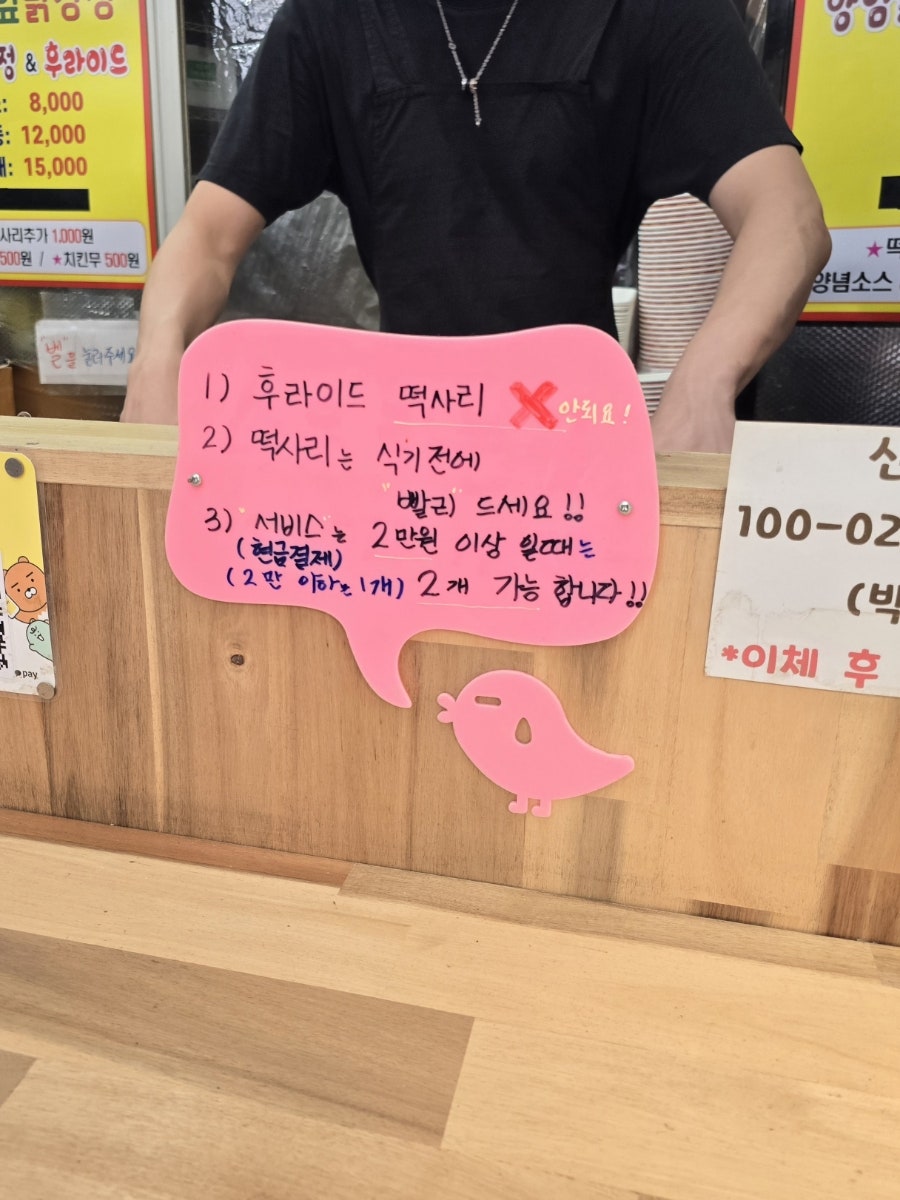 정 & 후라이드
8,000
12,000
15,000
사리추가 1,000원
500원 / ★치킨무 500원
"벨"을 눌러주세요
1) 후라이드 떡사리 X 안되요!
2) 떡사리는 식기전에
"빨리" 드세요!!
3) "서비스"는 2만원 이상 일때는
(현금결제)
(2만 이하는 1개) 2개 가능 합니다!!
pay
★떡
양념소스
신
100-02
(박
*이체 후